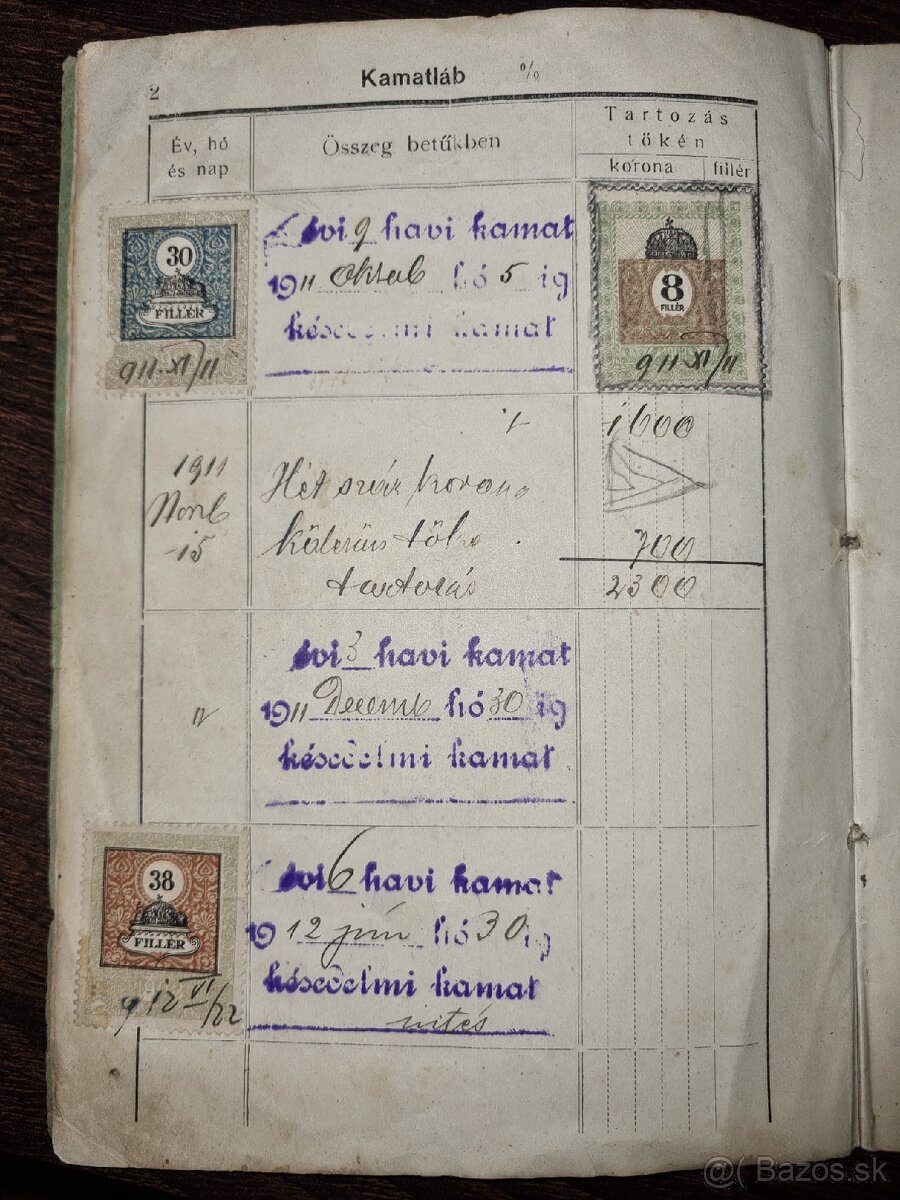 2
Kamatláb %
Év, hó és nap
Összeg betűkben
Tartozás tőkén
korona fillér
30
FILLÉR
911 XI/11
évi 9 havi kamat
1911 Oktob hó 5 ig
késedelmi kamat
8
FILLÉR
911 XI/11
1600
1911
Novb
15
Hét száz korona
700
tartozás
2300
évi 3 havi kamat
1911 Decemb hó 30 ig
késedelmi kamat
38
FILLÉR
912 VI/22
évi 6 havi kamat
1912 jún hó 30 ig
késedelmi kamat
@( Bazos.sk